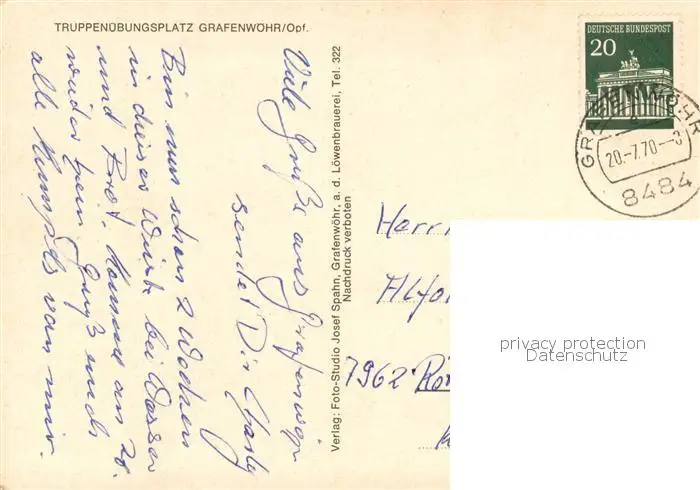 TRUPPENÜBUNGSPLATZ GRAFENWÖHR/Opf.
Viele Grüße aus Grafenwöhr
sendet Dir Charly
Bin nun schon 2 Wochen
in dieser Wüste bei Wasser
und Brot. Komme am 28.
wieder heim. Gruß auch
alle Kumpels von mir.
Verlag: Foto-Studio Josef Spahn, Grafenwöhr, a. d. Löwenbrauerei, Tel. 322
Nachdruck verboten
DEUTSCHE BUNDESPOST
20
GRAFENWÖHR
20.-7.70--3
8484
Herrn
Alfo
7962
privacy protection
Datenschutz